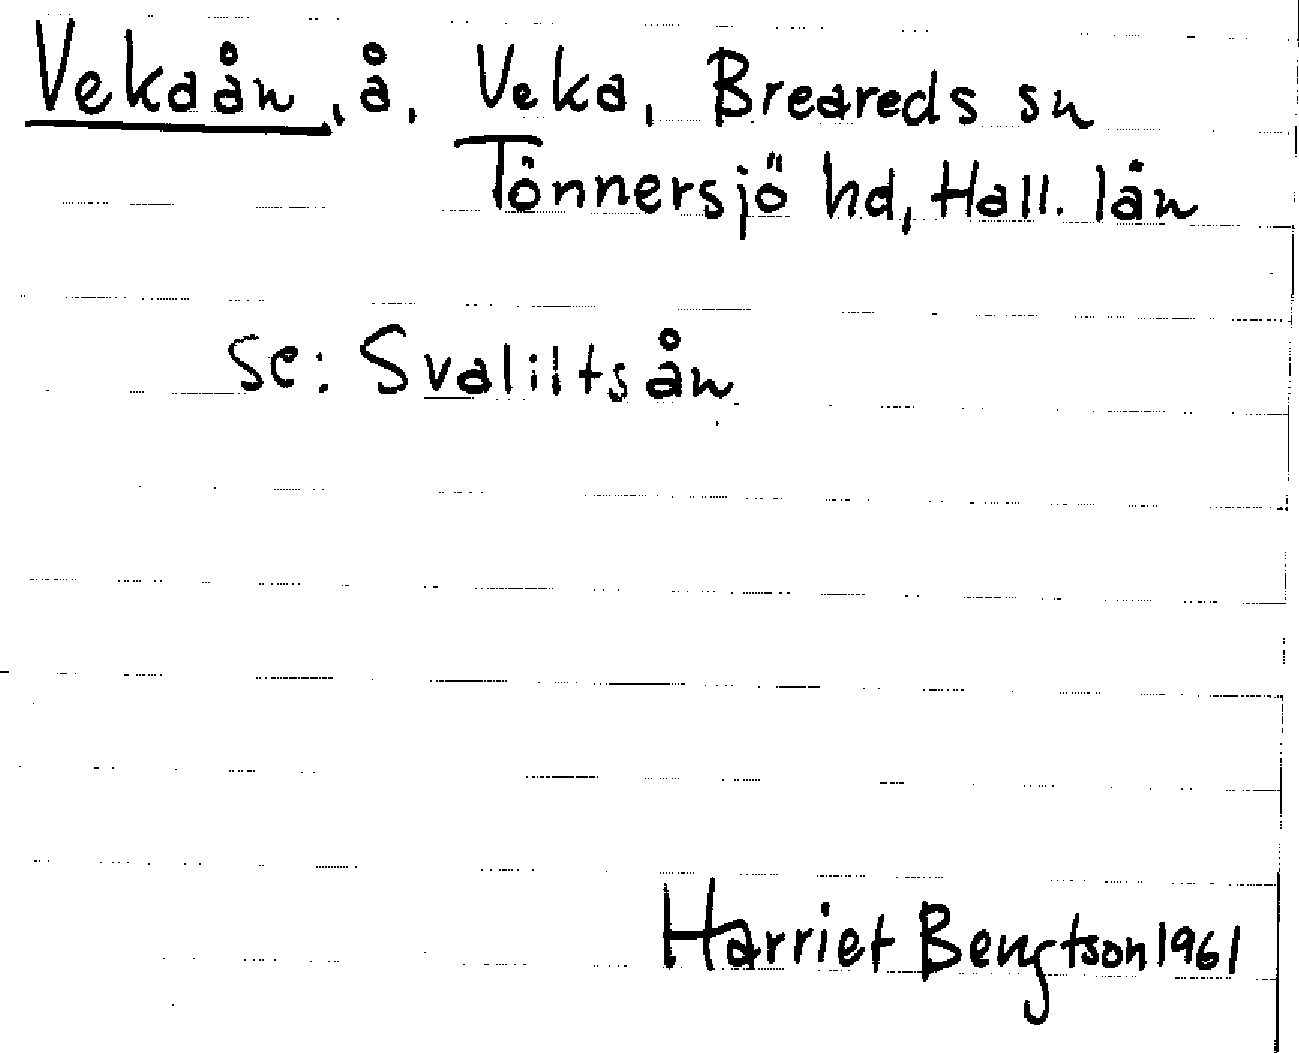 Vekaån, å, Veka, Breareds sn
Tönnersjö hd, Hall. län
se: Svaliltsån
Harriet Bengtson 1961